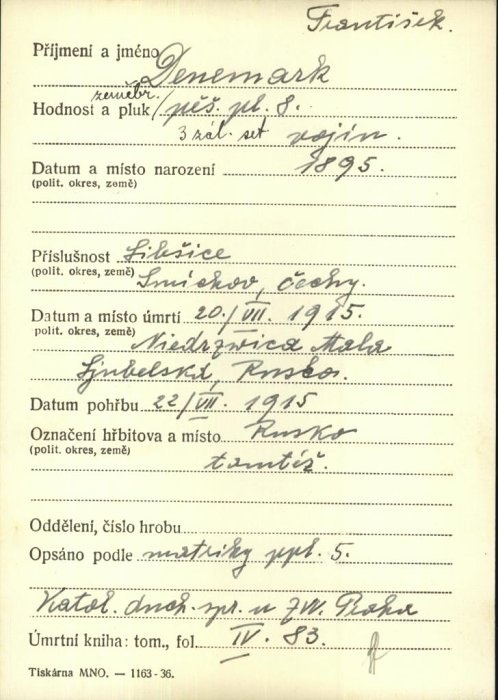 František.
Příjmení a jméno Denemark
zeměbr.
Hodnost a pluk /pěš. pl. 8.
3 zál. set vojín.
Datum a místo narození 1895.
(polit. okres, země)
Příslušnost Libšice
(polit. okres, země) Smíchov, Čechy.
Datum a místo úmrtí 20./VII. 1915.
polit. okres, země) Niedrzwica Mala
Ljubelská, Rusko.
Datum pohřbu 22/VII. 1915
Označení hřbitova a místo Rusko
(polit. okres, země) tamtéž.
Oddělení, číslo hrobu
Opsáno podle matriky ppl. 5.
Katol. duch. spr. u ZVV. Praha
Úmrtní kniha: tom., fol. IV. 83.
Tiskárna MNO. — 1163-36.